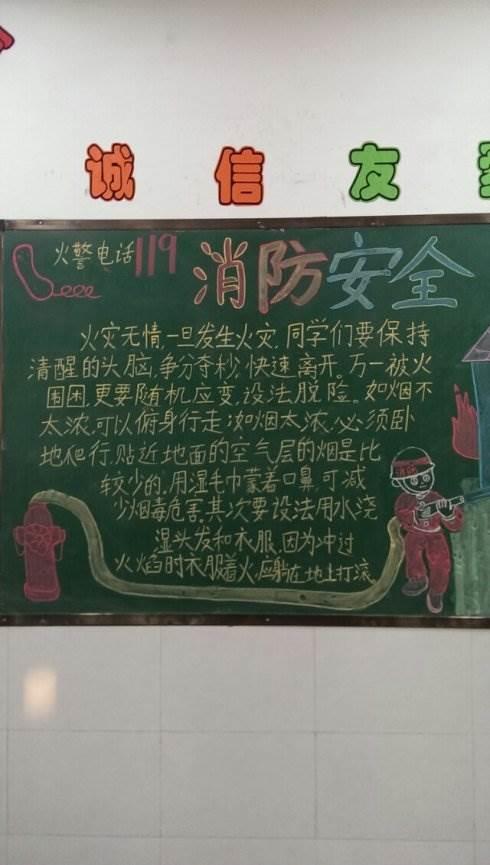 诚信友
火警电话119
消防安全
火灾无情,一旦发生火灾,同学们要保持
清醒的头脑,争分夺秒,快速离开。万一被火
围困,更要随机应变,设法脱险。如烟不
太浓,可以俯身行走;如烟太浓,必须卧
地爬行,贴近地面的空气层的烟是比
较少的,用湿毛巾蒙着口鼻,可减
少烟毒危害,其次要设法用水浇
湿头发和衣服,因为冲过
火焰时衣服着火,应躺在地上打滚